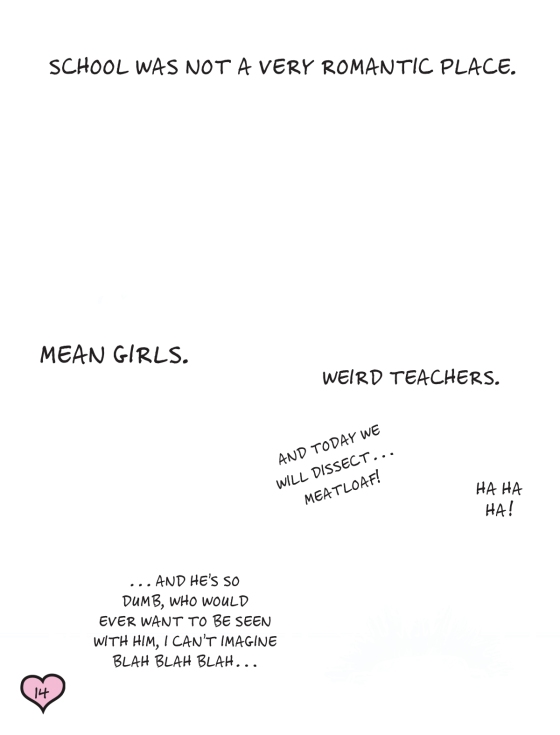 SCHOOL WAS NOT A VERY ROMANTIC PLACE.
MEAN GIRLS.
WEIRD TEACHERS.
AND TODAY WE
WILL DISSECT...
MEATLOAF!
HA HA
HA!
...AND HE'S SO
DUMB, WHO WOULD
EVER WANT TO BE SEEN
WITH HIM, I CAN'T IMAGINE
BLAH BLAH BLAH...
14